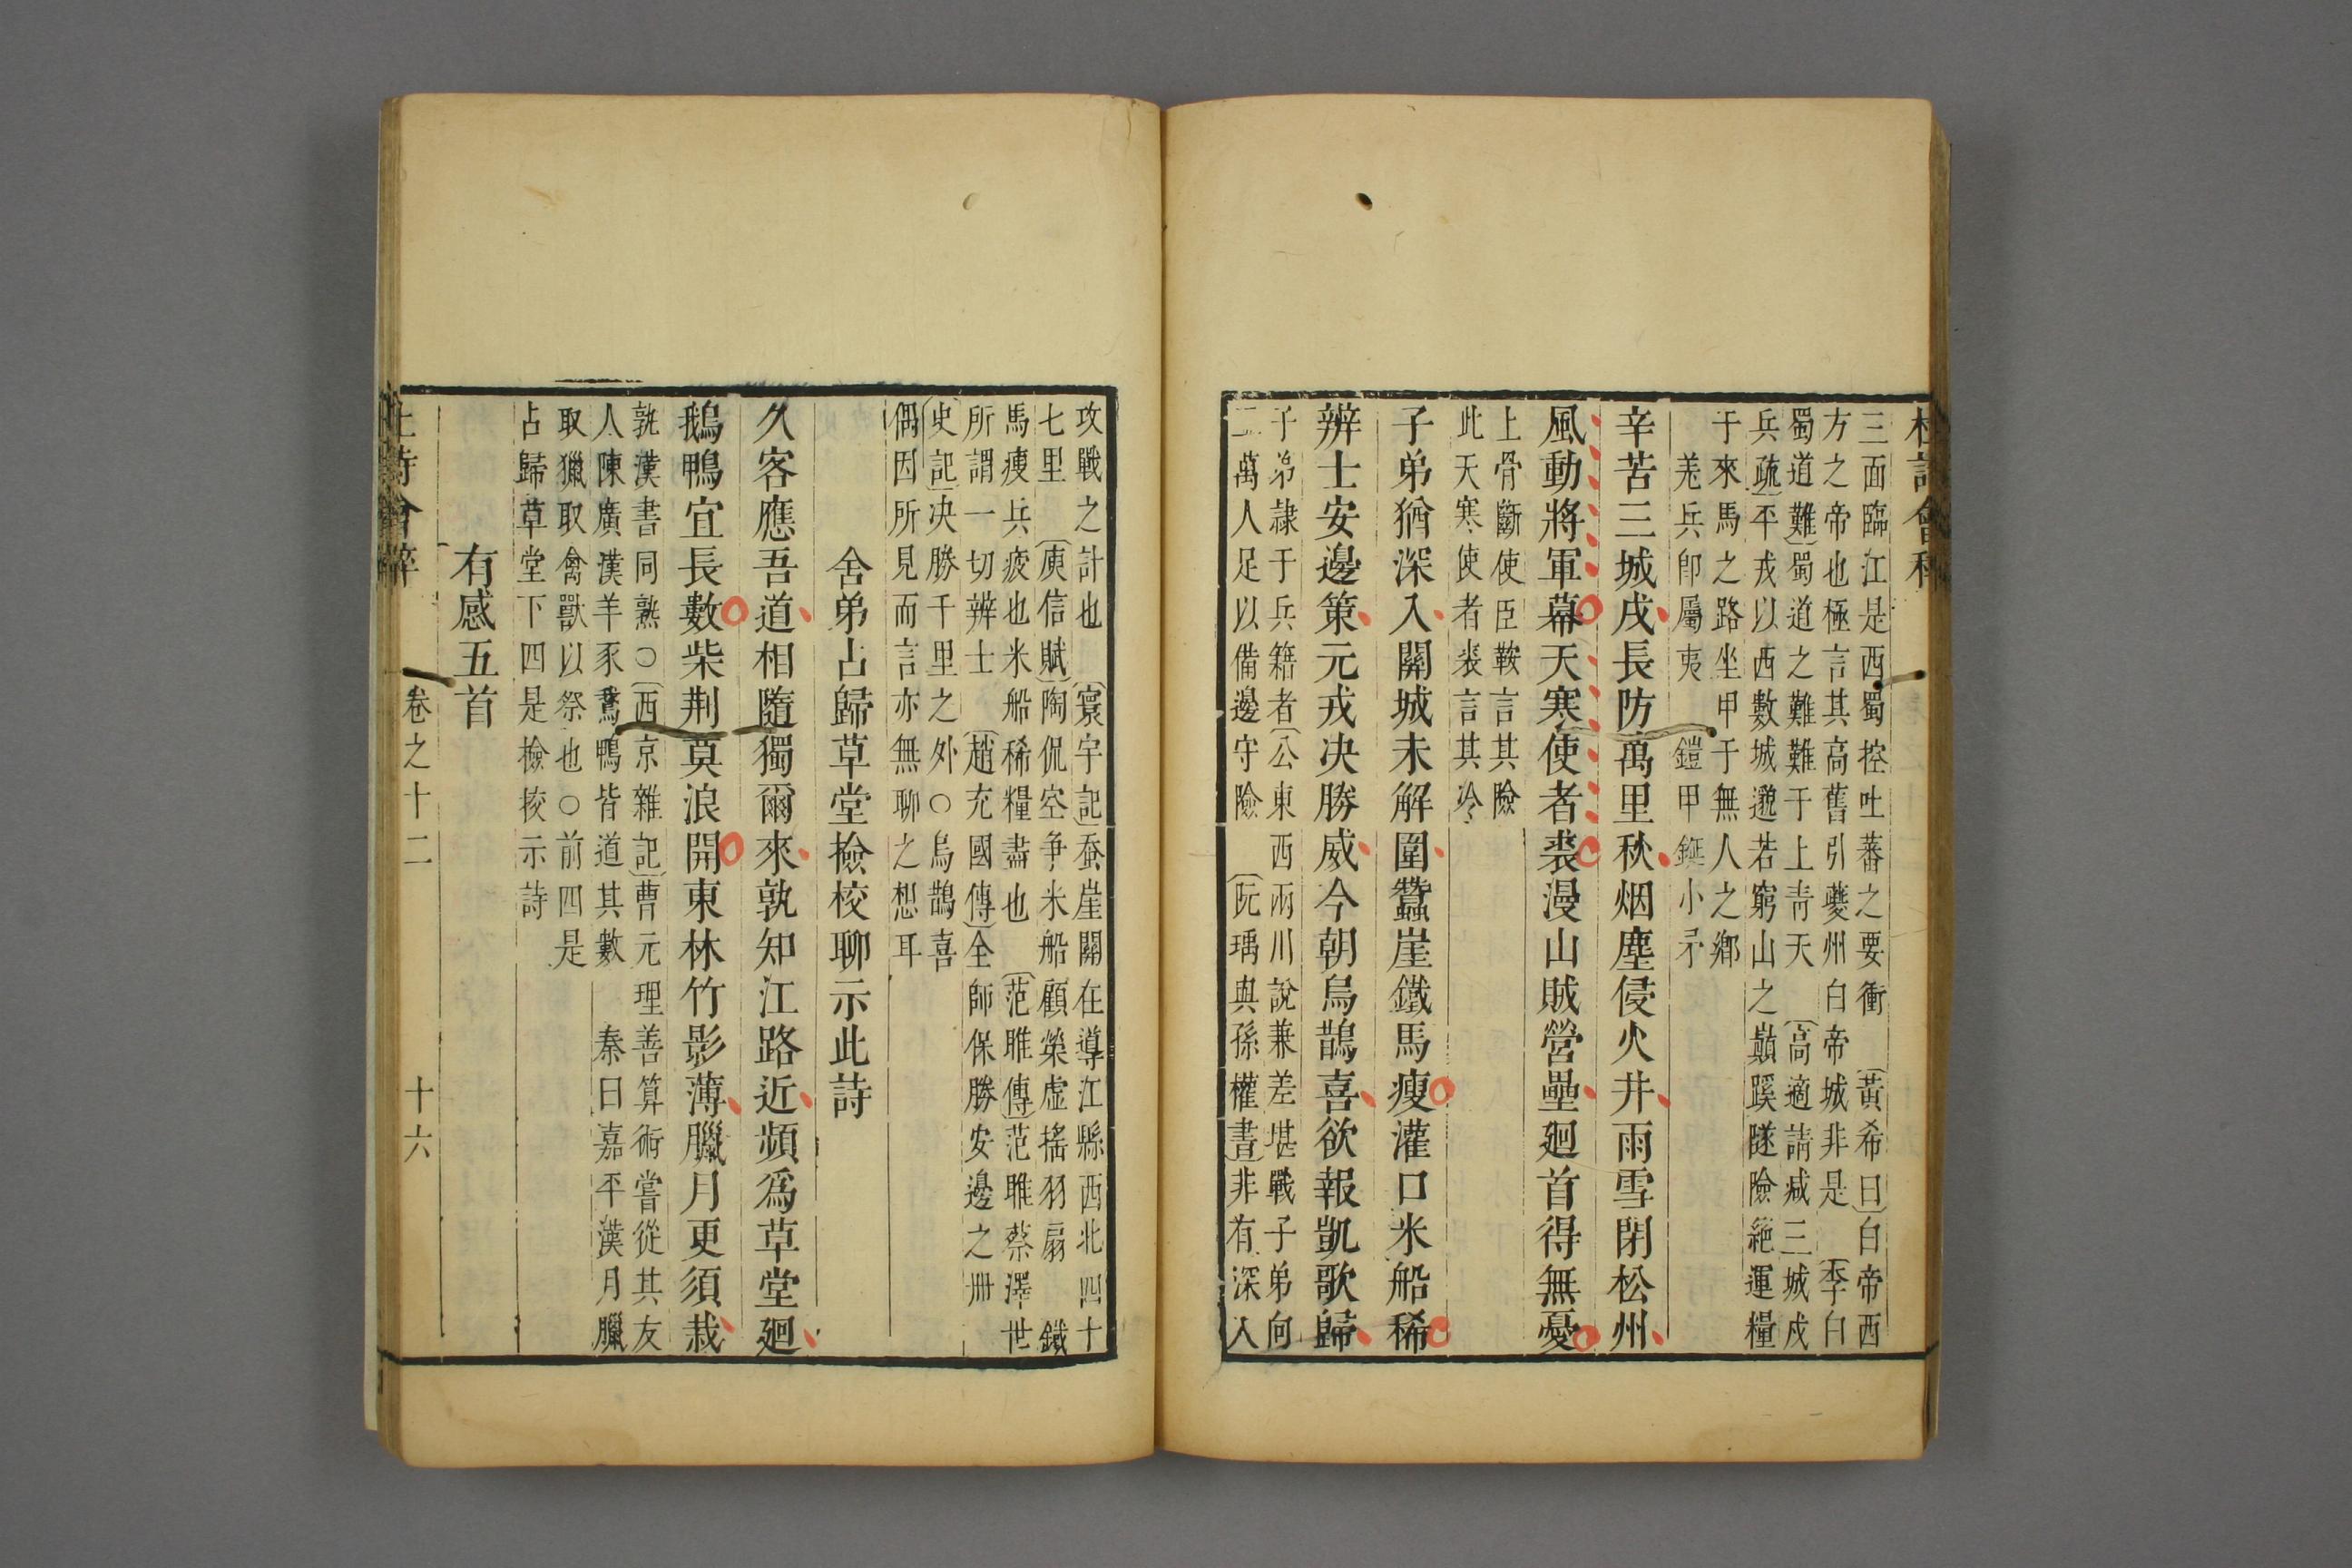 杜詩會稡
三面臨江是西蜀控吐蕃之要衝　黃希曰白帝西
方之帝也極言其高舊引夔州白帝城非是　李白
蜀道難蜀道之難難于上青天　高適請减三城戍
兵疏平戎以西數城邈若窮山之巔蹊隧險絶運糧
于來馬之路坐甲于無人之鄉
羌兵卽屬夷　鎧甲鋋小矛
辛苦三城戍長防萬里秋烟塵侵火井雨雪閉松州
風動將軍幕天寒使者裘漫山賊營壘廻首得無憂
上骨斷使臣鞍言其險
此天寒使者裘言其冷
子弟猶深入關城未解圍蠶崖鐵馬瘦灌口米船稀
辨士安邊策元戎决勝威今朝烏鵲喜欲報凱歌歸
子弟隷于兵籍者公東西兩川說兼差堪戰子弟向
二萬人足以備邊守險　阮瑀與孫權書非有深入
攻戰之計也　寰宇記蚕崖關在導江縣西北四十
七里　庾信賦陶侃空争米船顧榮虛搖羽扇　鐵
馬瘦兵疲也米船稀糧盡也　范雎傳范雎蔡澤世
所謂一切辨士　趙充國傳全師保勝安邊之冊
史記决勝千里之外○烏鵲喜
偶因所見而言亦無聊之想耳
舍弟占歸草堂撿校聊示此詩
久客應吾道相隨獨爾來孰知江路近頻爲草堂廻
鵝鴨宜長數柴荆莫浪開東林竹影薄臘月更須栽
孰漢書同熟○西京雜記曹元理善算術嘗從其友
人陳廣漢羊豕鵞鴨皆道其數　秦曰嘉平漢月臘
取獵取禽獸以祭也○前四是
占歸草堂下四是撿挍示詩
有感五首
杜詩會稡　卷之十二　十六